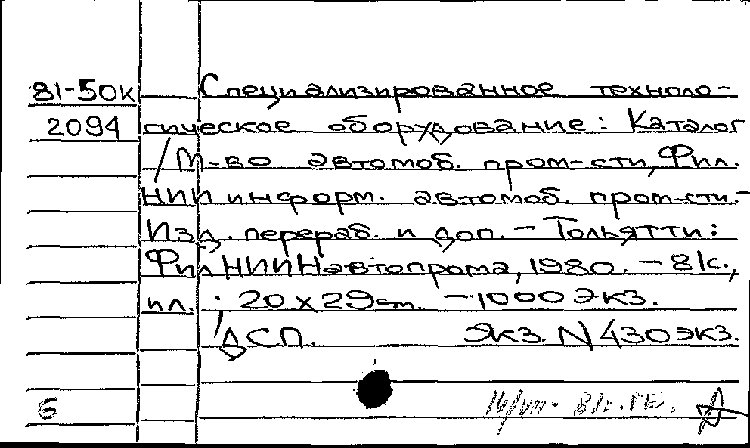 81-50к Специализированное техноло-
2094 гическое оборудование: Каталог
/ М-во автомоб. пром-сти, Фил.
НИИ информ. автомоб. пром-сти.-
Изд. перераб. и доп. - Тольятти:
Фил НИИНавтопрома, 1980. - 81с.,
ил.; 20 x 29 см. - 1000 экз.
ДСП. Экз. N 430 экз.
6